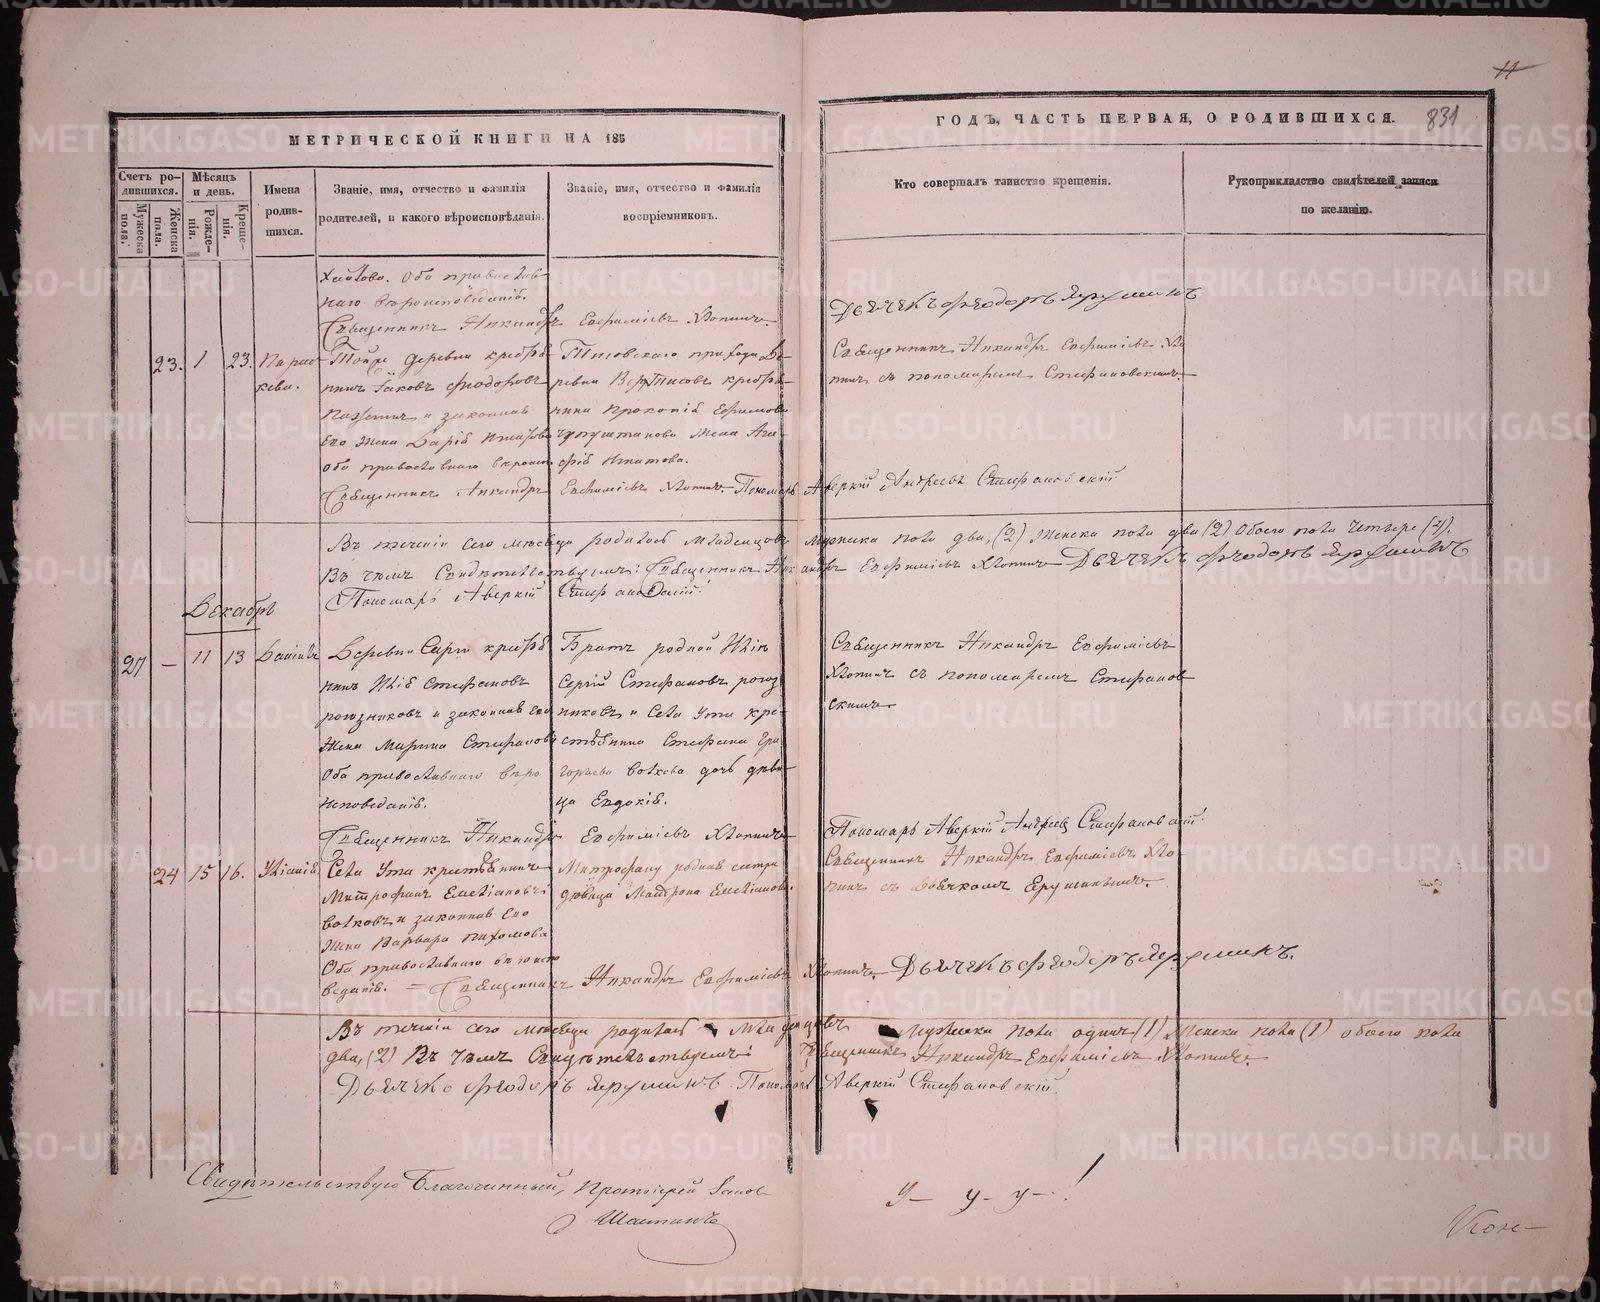 11
831
МЕТРИЧЕСКОЙ КНИГИ НА 185
ГОДЪ, ЧАСТЬ ПЕРВАЯ, О РОДИВШИХСЯ.
Счетъ ро-
дившихся.
Мужеска
пола.
Женска
пола.
Мѣсяцъ
и день.
Рожде-
нія.
Креще-
нія.
Имена
родив-
шихся.
Званіе, имя, отчество и фамилія
родителей, и какого вѣроисповѣданія.
Званіе, имя, отчество и фамилія
воспріемниковъ.
Кто совершалъ таинство крещенія.
Рукоприкладство свидѣтелей записи
по желанію.
Оба православ-
наго вѣроисповѣданія.
Священникъ Никандръ Евфиміевъ Хлопинъ.
23. 1 23. Парас-
кева.
Тойже деревни крестья-
нинъ Іаковъ Феодоровъ
и законная
его жена Дарія Игнатова
Оба православнаго вѣроисп
Священникъ Никандръ Евфиміевъ Хлопинъ. Пономарь Аверкій Андреевъ Стефановскій
прихода де-
ревни крестья-
нина Прокопія Ефимова
жена Ага-
фія Игнатова.
Дьячекъ Феодоръ Ярушинъ
Священникъ Никандръ Евфиміевъ Хло
пинъ съ пономаремъ Стефановскимъ.
Въ теченіи сего месяца родилось младенцовъ мужеска пола два, (2) женска пола два (2) обоего пола четыре (4).
Въ чемъ Свидетельствуемъ: Священникъ Никандръ Евфиміевъ Хлопинъ Дьячекъ Феодоръ Ярушинъ
Пономарь Аверкій Стефановскій
Декабрь
27 — 11 13 Даніилъ
Деревни Сарги крестья
нинъ Илія Стефановъ
рогозниковъ и законная его
жена Марина Стефанова
Оба православнаго веро
исповеданія.
Братъ родной Иліи
Сергій Стефановъ рогоз
никовъ и Села Утки кре-
стьянина Стефана Гри
горьева Волкова дочь деви-
ца Евдокія.
Священникъ Никандръ Евфиміевъ
Хлопинъ съ пономаремъ Стефанов
скимъ.
Священникъ Никандръ Евфиміевъ Хлопинъ Пономарь Аверкій Андреевъ Стефановскій
24 15 16. Уліанія
Села Утки крестьянинъ
Митрофанъ Емеліановъ
Волковъ и законная его
жена Варвара Пахомова
Оба православнаго вероиспо
веданія. = Священникъ Никандръ Евфиміевъ Хлопинъ. Дьячекъ Феодоръ Ярушинъ.
Митрофану родная сестра
девица Матрона Емеліанова.
Священникъ Никандръ Евфиміевъ Хло
пинъ съ дьячкомъ Ярушинымъ.
Въ теченіи сего месяца родилось младенцовъ Мужеска пола одинъ (1) Женска пола (1) обоего пола
два, (2) Въ чемъ Свидетельствуемъ: Священникъ Никандръ Евфиміевъ Хлопинъ
Дьячекъ Феодоръ Ярушинъ Пономарь Аверкій Стефановскій
Свидетельствую Благочинный, Протоіерей